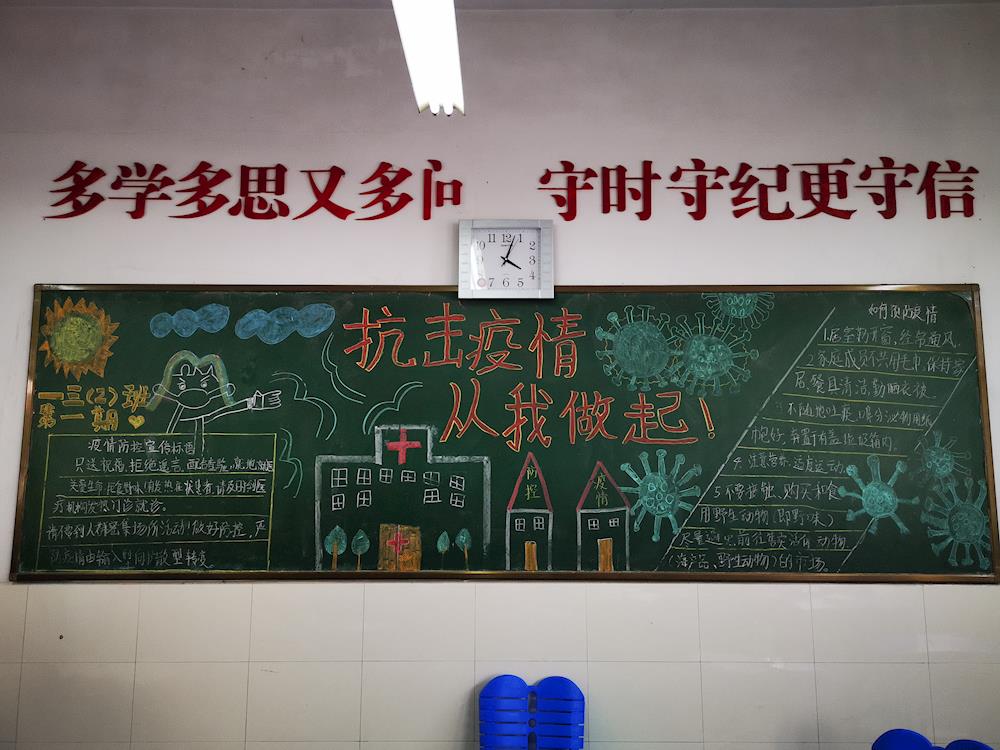 多学多思又多问 守时守纪更守信
10 11 12 1 2 3 4 5 6 7
抗击疫情
从我做起!
一三(2)班
第一期
疫情防控宣传标图
只送祝福,拒绝
关爱生命,拒食野味!
疗机构发热门诊就诊。
请不要到人群密集场所活动!做好防控,严
防疫情由输入型向扩散型转变
防控
疫情
如何预防疫情
1.居室勤开窗,经常通风.
2.家庭成员不共用毛巾,保持家
居、餐具清洁,勤晒衣被
3.不随地吐痰,口鼻分泌物用纸
巾包好,弃置于有盖垃圾箱内.
4.注意营养,适度运动.
5.不要接触、购买和食
用野生动物(即野味)
尽量避免前往售卖活体动物
(海产品、野生动物)的市场。